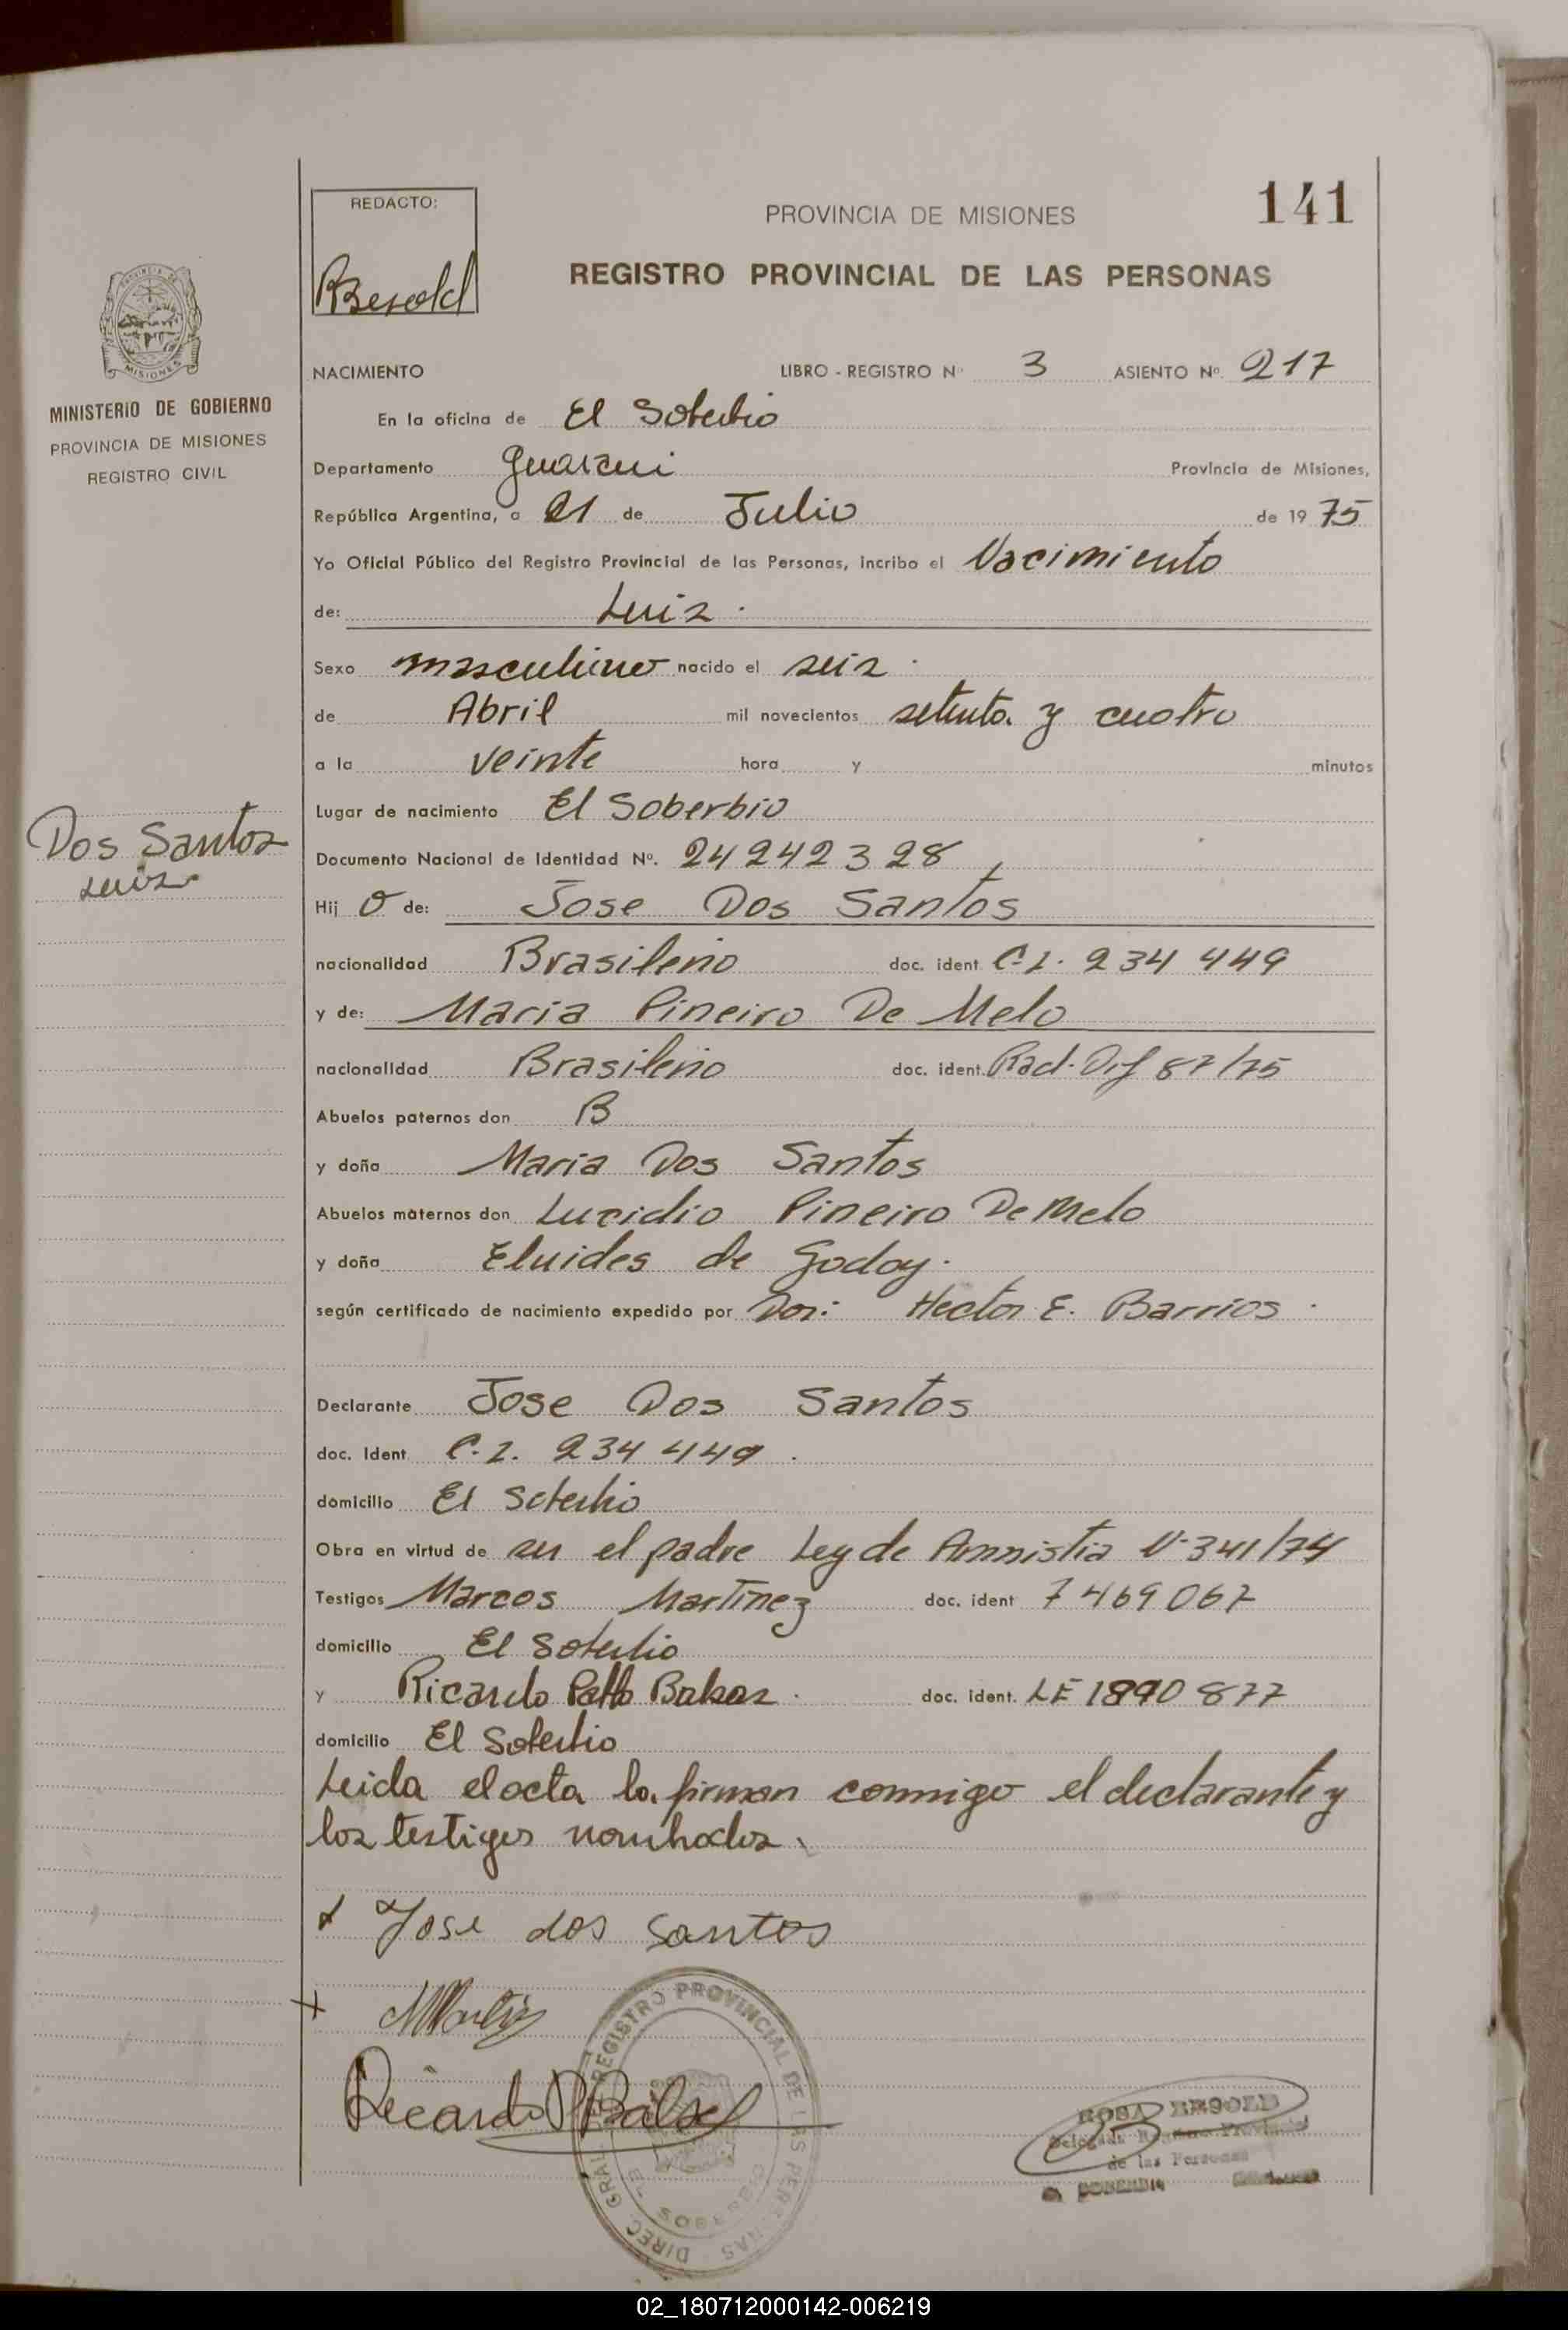 141
REDACTO:
PROVINCIA DE MISIONES
REGISTRO PROVINCIAL DE LAS PERSONAS
MISIONES
MINISTERIO DE GOBIERNO
PROVINCIA DE MISIONES
REGISTRO CIVIL
NACIMIENTO LIBRO - REGISTRO Nº 3 ASIENTO Nº. 217
En la oficina de El Soberbio
Departamento Guarani Provincia de Misiones,
República Argentina, a 21 de Julio de 19 75
Yo Oficial Público del Registro Provincial de las Personas, incribo el Nacimiento
de: Luis.
Sexo masculino nacido el seis.
de Abril mil novecientos setenta y cuatro
a la veinte hora y minutos
Lugar de nacimiento El Soberbio
Dos Santos
Luis
Documento Nacional de Identidad Nº. 24242328
Hij o de: Jose Dos Santos
nacionalidad Brasileño doc. ident C.I. 234 449
y de: Maria Pineiro De Melo
nacionalidad Brasileño doc. ident. Rad. Dif 87/75
Abuelos paternos don B
y doña Maria Dos Santos
Abuelos maternos don Lucidio Pineiro De Melo
y doña Eluides de Godoy.
según certificado de nacimiento expedido por Hector E. Barrios.
Declarante Jose Dos Santos
doc. Ident C.I. 234 449.
domicilio El Soberbio
Obra en virtud de ser el padre Ley de Amnistia Nº 341/74
Testigos Marcos Martinez doc. ident 7469067
domicilio El Soberbio
y Ricardo doc. ident. LE 1890 877
domicilio El Soberbio
Leida el acta la firman conmigo el declarante y
los testigos nombrados.
Jose dos Santos
Ricardo
DIREC. GRAL. REGISTRO PROVINCIAL DE LAS PERSONAS
Delegada Registro Provincial
de las Personas
02_180712000142-006219